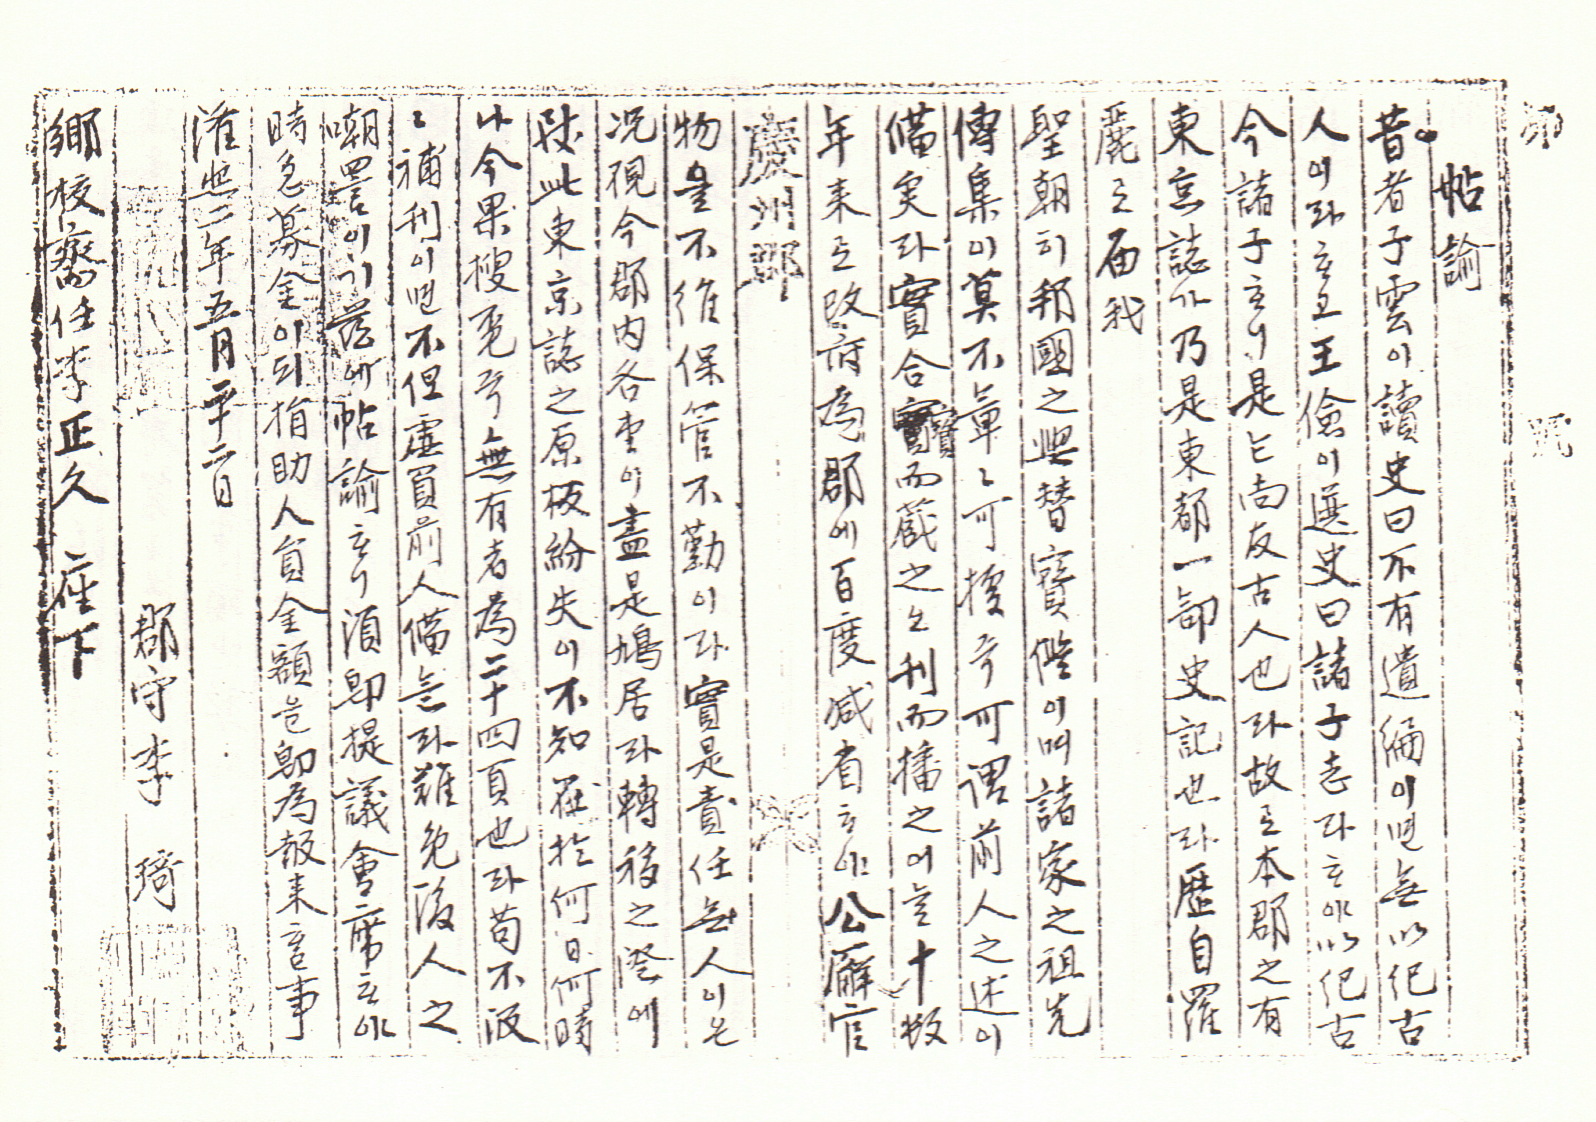 帖諭
昔者子雲이讀史曰不有遺編이면無以紀古
人이라고王儉이選史曰諸子志라야以紀古
今諸子하니是亡尚友古人也라故로本郡之有
東京誌가乃是東都一部史記也라歷自羅
麗로届我
聖朝히邦國之興替寶鑑이며諸家之祖先
傳集이莫不單〻可據오可謂前人之述이
備矣라實合寶而藏之요刊而播之어늘十數
年来로改府為郡에百度減省하야公廨官
慶州郡
物을不維保管不勤이라實是責任無人이온
况視今郡內各吏이盡是鳩居라轉移之際에
致此東京誌之原板紛失이不知在於何日何時
나今果搜覓오無有者為二十四頁也라苟不汲
〻補刊이면不但虛負前人備意라難免後人之
嘲罵이기玆에帖諭하니須即提議會席하야
時急募金이되捐助人員金額을即為報来할事
隆熙二年五月二十二日
郡守李琦
鄉校齋任李正久 座下